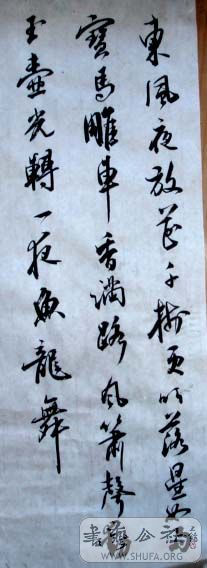 東風夜放花千樹更吹落星如雨
寶馬雕車香滿路鳳簫聲動
玉壺光轉一夜魚龍舞
書法公社
WWW.SHUFA.ORG